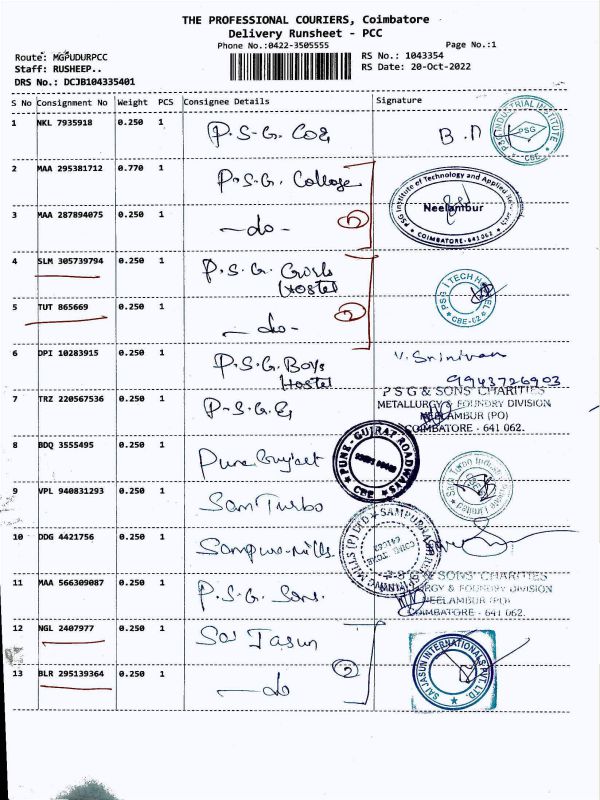 THE PROFESSIONAL COURIERS, Coimbatore
Delivery Runsheet - PCC
Phone No.:0422-3505555 Page No.:1
Route: MGPUDURPCC RS No.: 1043354
Staff: RUSHEEP.. RS Date: 20-Oct-2022
DRS No.: DCJB104335401
S No Consignment No Weight PCS Consignee Details Signature
1 NKL 7935918 0.250 1 P.S.G. CoE B.M
PSG INDUSTRIAL INSTITUTE PSG CBE
2 MAA 295381712 0.770 1 P.S.G. College
PSG Institute of Technology and Applied Research
Neelambur
COIMBATORE - 641 062
3 MAA 287894075 0.250 1 -do- 2
4 SLM 305739794 0.250 1 P.S.G. Girls
Hostel
PSG I TECH HOSTEL CBE-62
5 TUT 865669 0.250 1 -do- 2
6 DPI 10283915 0.250 1 P.S.G. Boys V. Srinivan
Hostel 9943726903
7 TRZ 220567536 0.250 1 P.S.G.
P S G & SONS' CHARITIES
METALLURGY & FOUNDRY DIVISION
NEELAMBUR (PO)
COIMBATORE - 641 062.
8 BDQ 3555495 0.250 1 Pune Gujrat
PUNE - GUJRAT ROADWAYS CBE
9 VPL 940831293 0.250 1 Sam Turbo
Sam Turbo Industry Private Limited
10 DDG 4421756 0.250 1 Sampure-mills
11 MAA 566309087 0.250 1 P.S.G. Sons.
P S G & SONS' CHARITIES
METALLURGY & FOUNDRY DIVISION
NEELAMBUR (PO)
COIMBATORE - 641 062.
12 NGL 2407977 0.250 1 Sai Jasun
13 BLR 295139364 0.250 1 -do 2
SAI JASUN INTERNATIONALS PVT. LTD.